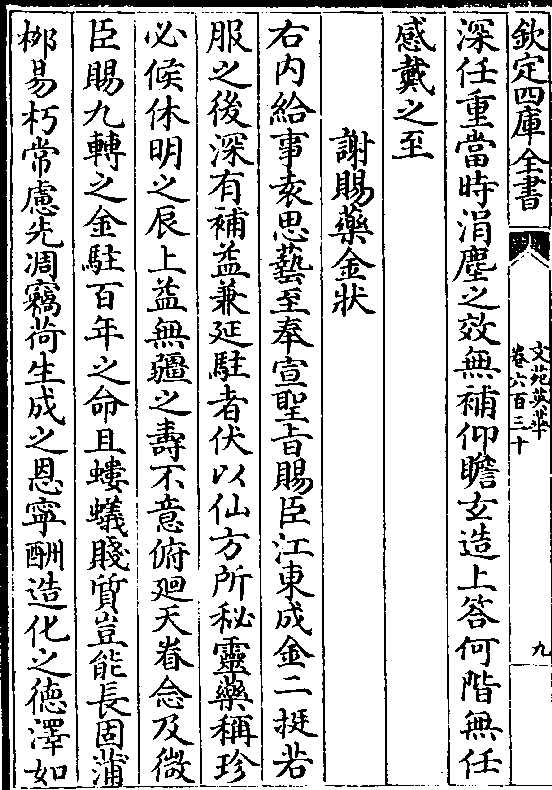 欽定四庫全書
文苑英華
卷六百三十
九
深任重當時涓塵之效無補仰瞻玄造上答何階無任
感戴之至
謝賜藥金狀
右内給事袁思藝至奉宣聖旨賜臣江東成金二挺若
服之後深有補益兼延駐者伏以仙方所秘靈藥稱珍
必候休明之辰上益無疆之壽不意俯廻天眷念及微
臣賜九轉之金駐百年之命且螻蟻賤質豈能長固蒲
栁易朽常慮先凋竊荷生成之恩寧酬造化之德澤如